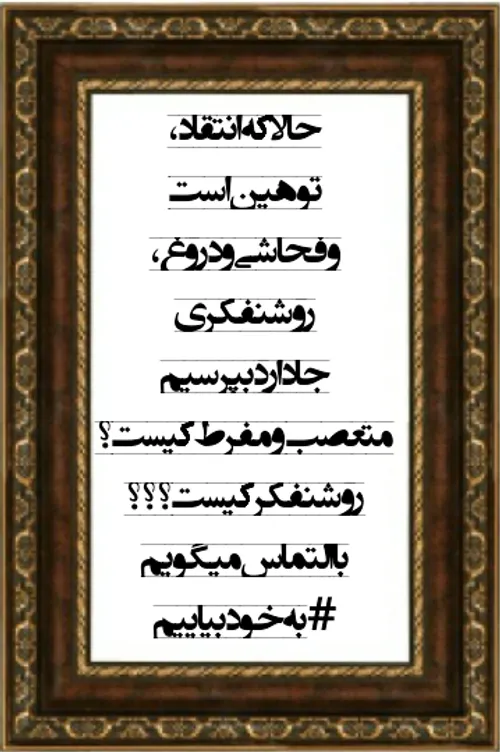 حالا که انتقاد،
توهین است
و فحاشی و دروغ،
روشنفکری
جا دارد بپرسیم
متعصب و مفرط کیست؟
روشنفکر کیست؟؟؟
با التماس میگویم
#به خود بیاییم